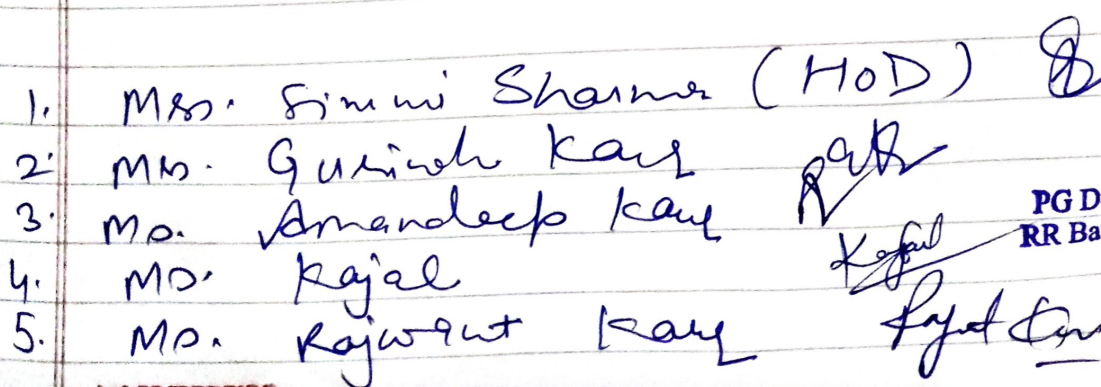 1. Mrs. Simmi Sharma (HOD)
2. Mrs. Gurinder Kaur
3. Ms. Amandeep Kaur
PG D
RR Ba
4. Ms. Kajal Kajal
5. Ms. Rajwant Kaur